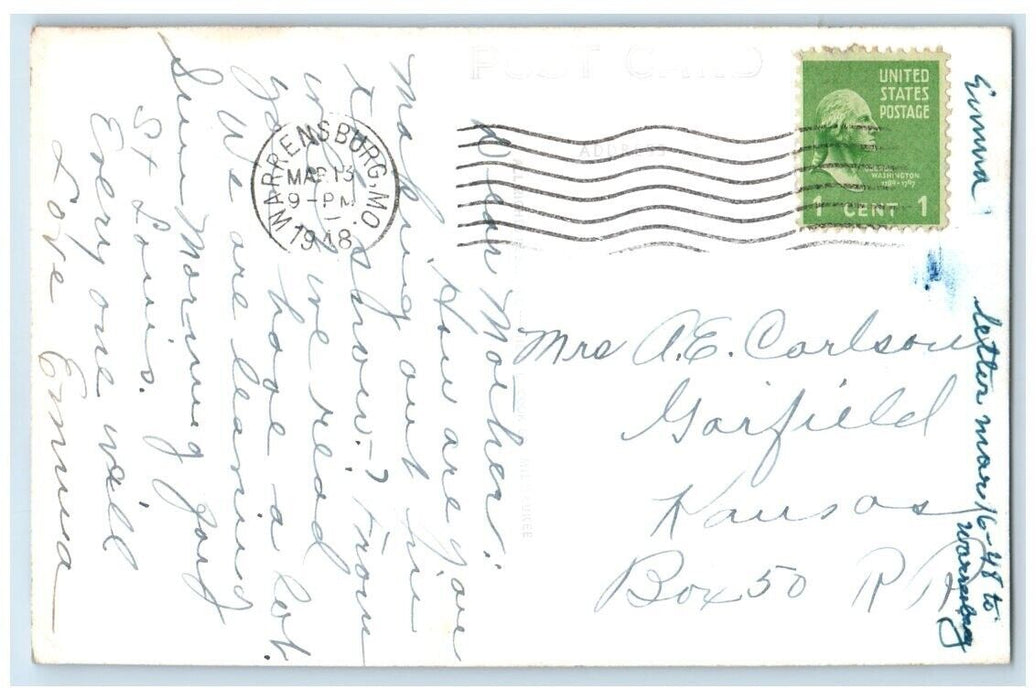 POST CARD
ADDRESS
WARRENSBURG, MO.
MAR 13
9-PM
1948
UNITED
STATES
POSTAGE
WASHINGTON
1789-1797
1 CENT 1
Dear Mother:
How are you
making out in
the snow? From
what we read
you have a lot.
We are leaving
Sun Morning for
St Louis.
Every one well
Love Emma
Mrs A.E. Carlson
Garfield
Kansas
Box 50 R
Emma
letter mar 16-48 to
Warrensburg